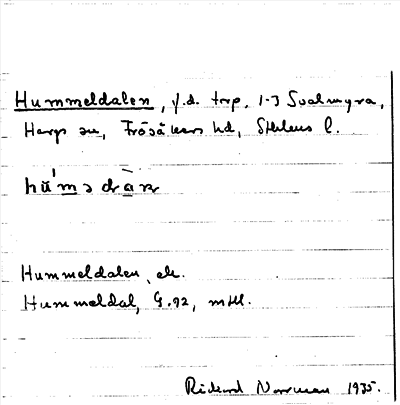 Hummeldalen, f.d. torp, 1-3 Svalmyra,
Harg sn, Frösåkers hd, Sthlms l.
Hummeldalen, ek.
Hummeldal, G.92, mtl.
Rickard Norrman 1935.